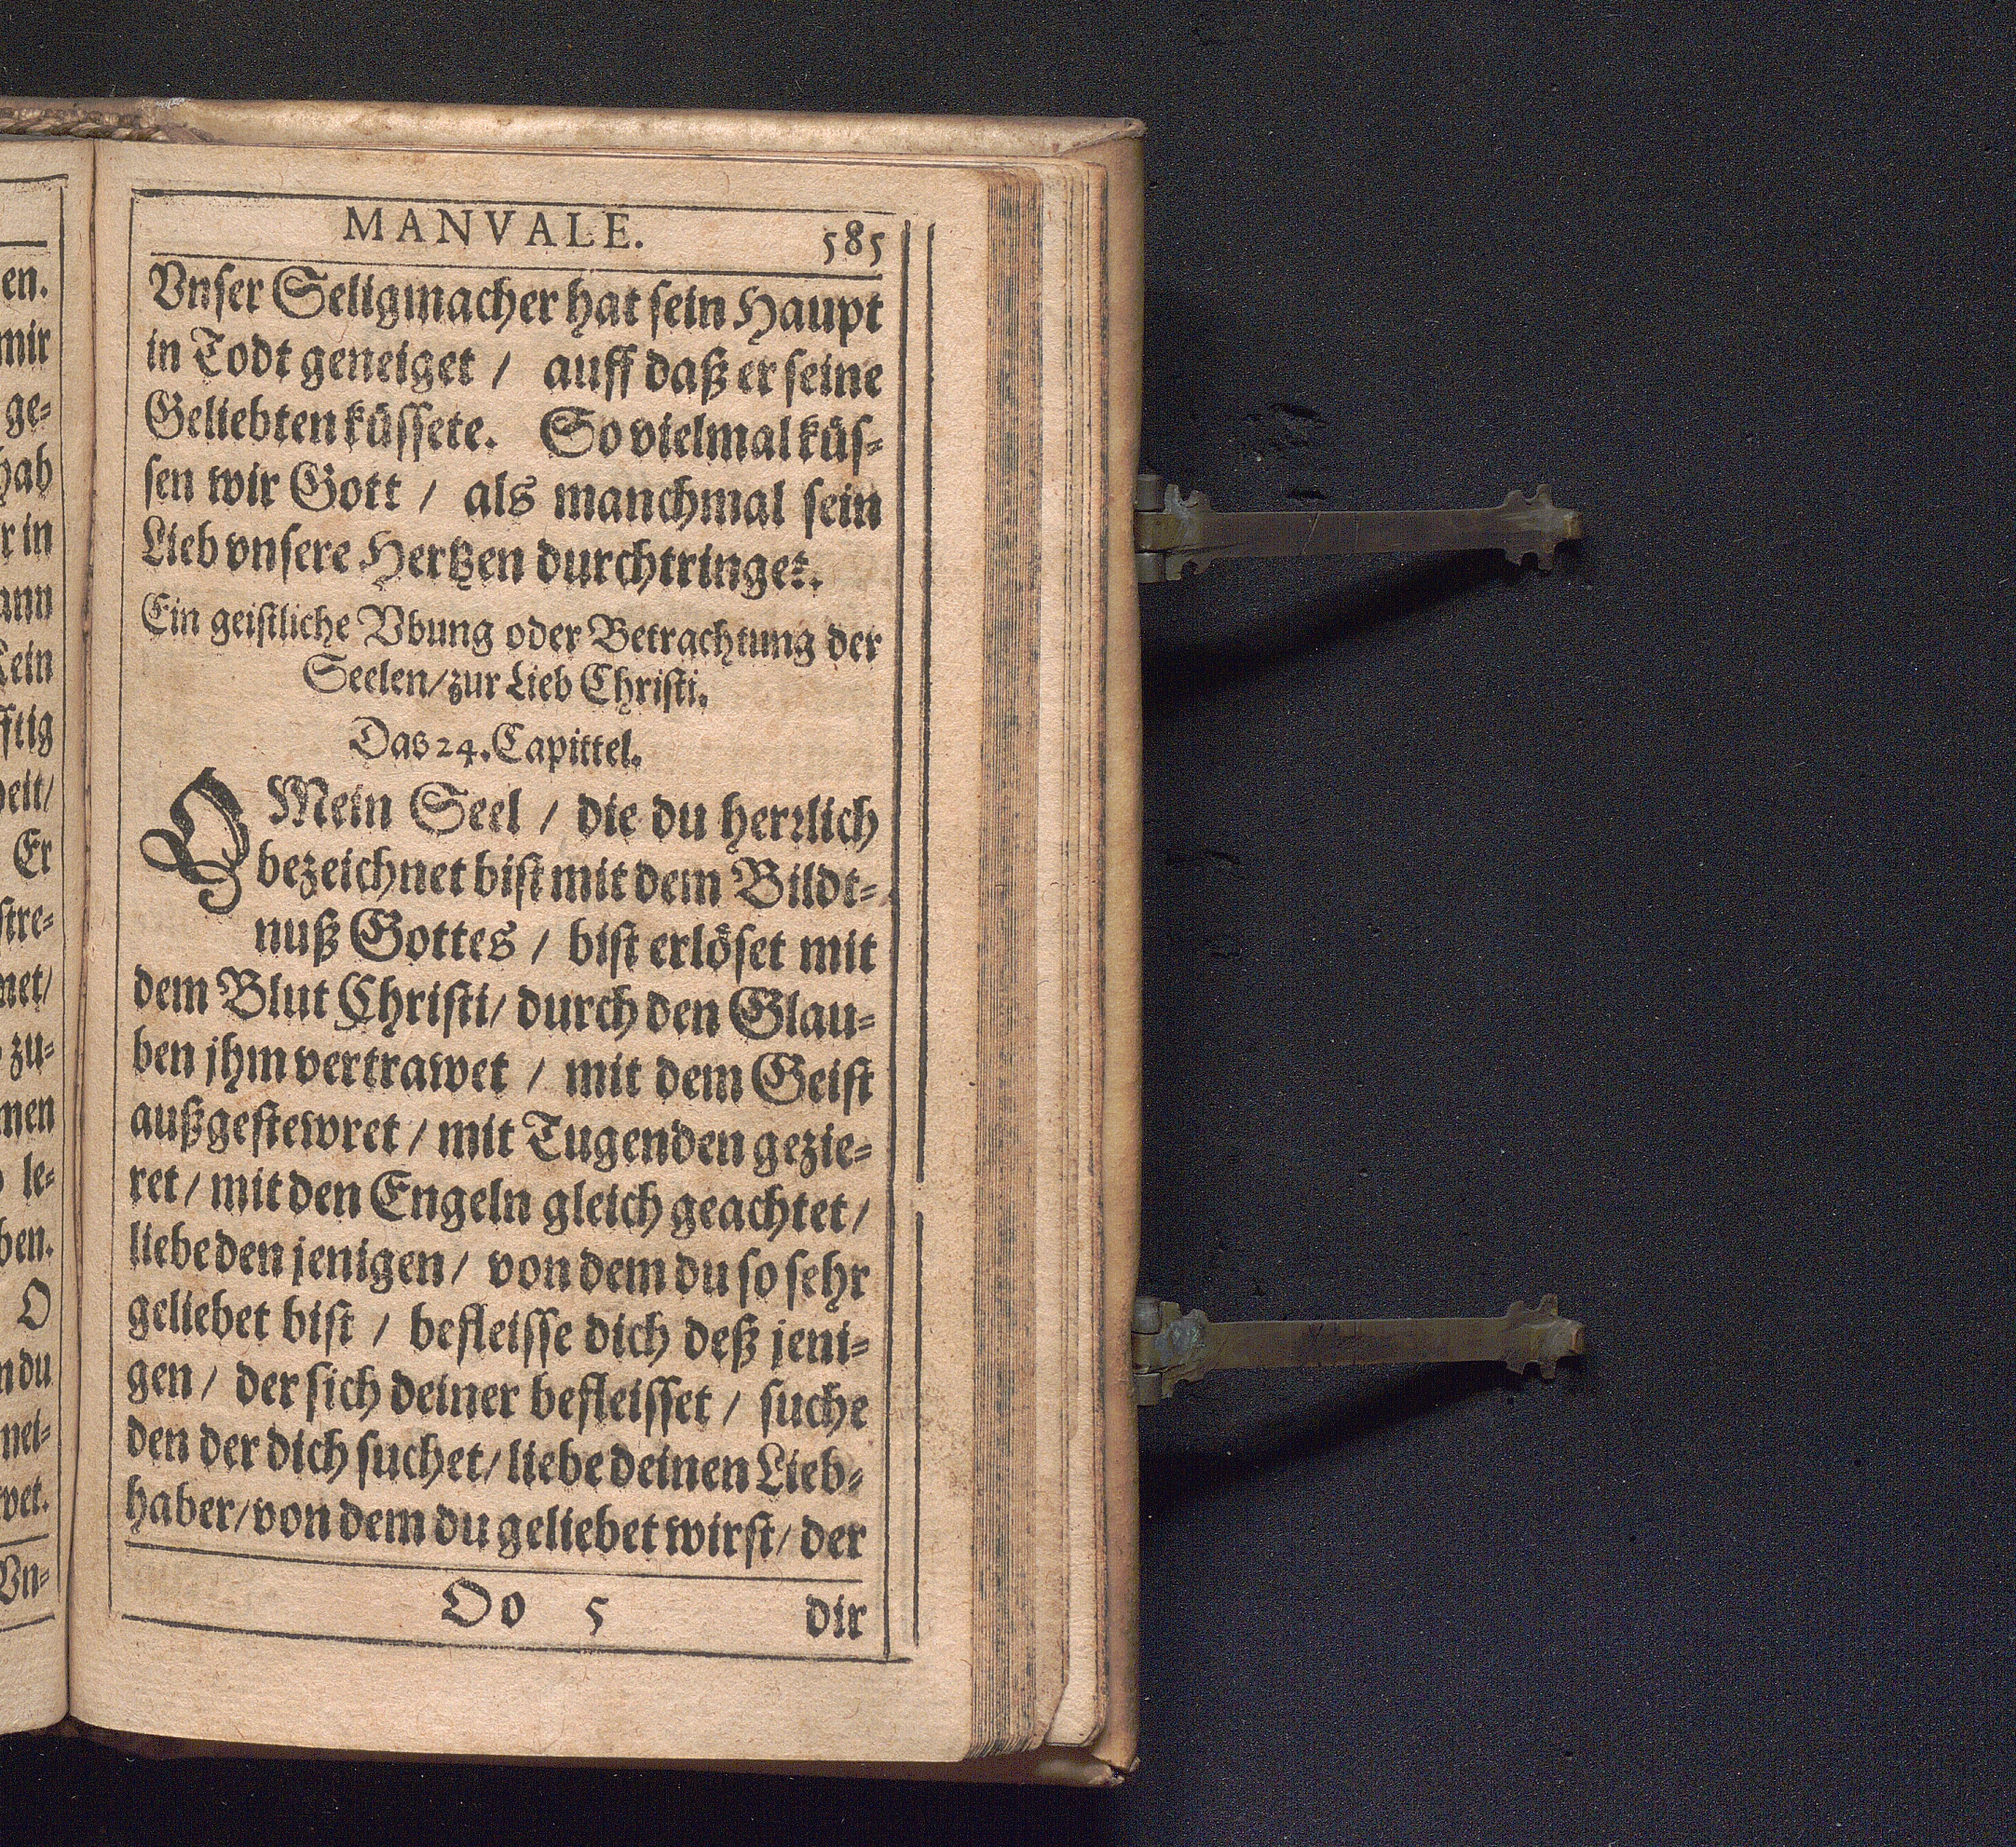 MANVALE. 585
Vnser Seligmacher hat sein Haupt
in Todt geneiget / auff daß er seine
Geliebten küssete. So vielmal küs-
sen wir Gott / als manchmal sein
Lieb vnsere Hertzen durchtringet.
Ein geistliche Vbung oder Betrachtung der
Seelen/zur Lieb Christi.
Das 24. Capittel.
O Mein Seel / die du herrlich
bezeichnet bist mit dem Bildt-
nuß Gottes / bist erlöset mit
dem Blut Christi/ durch den Glau-
ben jhm vertrawet / mit dem Geist
außgestewret / mit Tugenden gezie-
ret / mit den Engeln gleich geachtet /
liebe den jenigen / von dem du so sehr
geliebet bist / befleisse dich deß jeni-
gen / der sich deiner befleisset / suche
den der dich suchet/ liebe deinen Lieb-
haber/ von dem du geliebet wirst/ der
Oo 5 dir